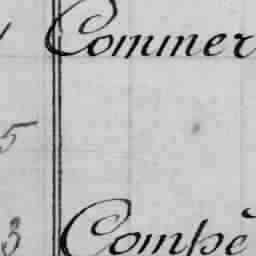 Commer
5
3 Compe